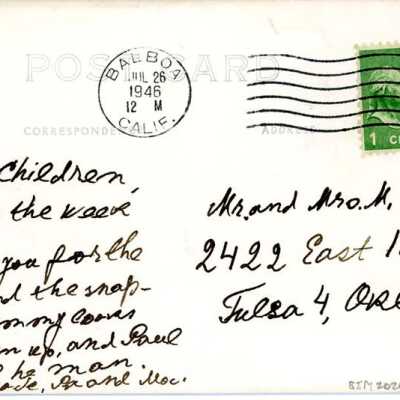 POST CARD
BALBOA
JUL 26
1946
12 M
CALIF.
CORRESPONDENCE
ADDRESS
1 C
Children,
the week
you for the
nd the snap-
mmy looks
n up, and Paul
he man.
Pa and Moc.
Mr. and Mrs. M.
2422 East 1
Tulsa 4, Okl